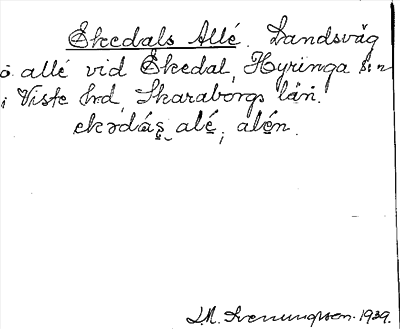 Ekedals Allé. Landsväg
o. allé vid Ekedal, Hyringa sn
i Viste hrd, Skaraborgs län.
ekədás̱ alé, alén.
J. M. Svenungsson. 1939.